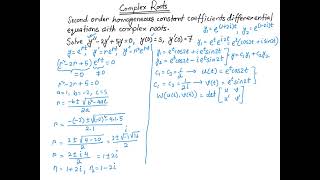 Complex Roots
Second order homogeneous constant coefficients differential
equations with complex roots.
Solve y''-2y'+5y=0, y(0)=3, y'(0)=7
y=e^{rt}, y'=re^{rt}, y''=r²e^{rt}
(r²-2r+5)e^{rt}=0
=0 ≠0
r²-2r+5=0
a=1, b=-2, c=5
r = -b±√b²-4ac / 2a
= -(-2)±√(-2)²-4·1·5 / 2·1
r = 2±√4-20 / 2 = 2±√-16 / 2
r = 2±i4 / 2 = 1±2i
r₁=1+2i, r₂=1-2i
y₁=e^{(1+2i)t}, y₂=e^{(1-2i)t}
y₁=e^t e^{i2t}=e^t(cos2t+isin2t)
y₁=e^t cos2t+ie^t sin2t
y₂=e^t cos2t-ie^t sin2t
c₁=c₂=1/2 → u(t)=e^t cos2t
→ v(t)=e^t sin2t
W(u,v)(t)=det[u v
u' v']